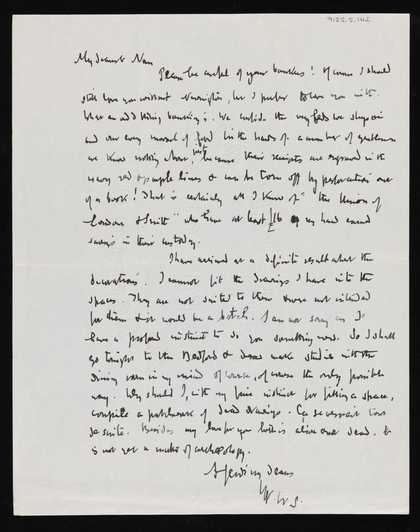 9125.5.142
My dearest Nan
Please be careful of your bankers! Of course I should
still love you without Newington, but I prefer to love you with.
What an odd thing banking is. We confide the very beds we sleep in
and our every morsel of food in the hands of a number of gentlemen
we know nothing about, just because their receipts are engraved in
wavy red & purple lines & can be torn off by perforation out
of a book! That is certainly all I know of "the Union of
London & Smith" who have at least £16 of my hard earned
savings in their custody.
I have arrived at a definite result about the
decorations. I cannot fit the drawings I have into the
spaces. They are not suited to them & were not intended
for them & it would be a botch. I am not sorry as I
have a profound instinct to do you something new. So I shall
go tonight to the Bedford & make studies with the
dining room in my mind of course, of course the only possible
way. Why should I, with my fine instinct for filling a space,
compile a patchwork of dead drawings. Ça se verrait tout
de suite. Besides my love for you both is alive & not dead. It
is not yet a matter of archæology.
dears
W. S.